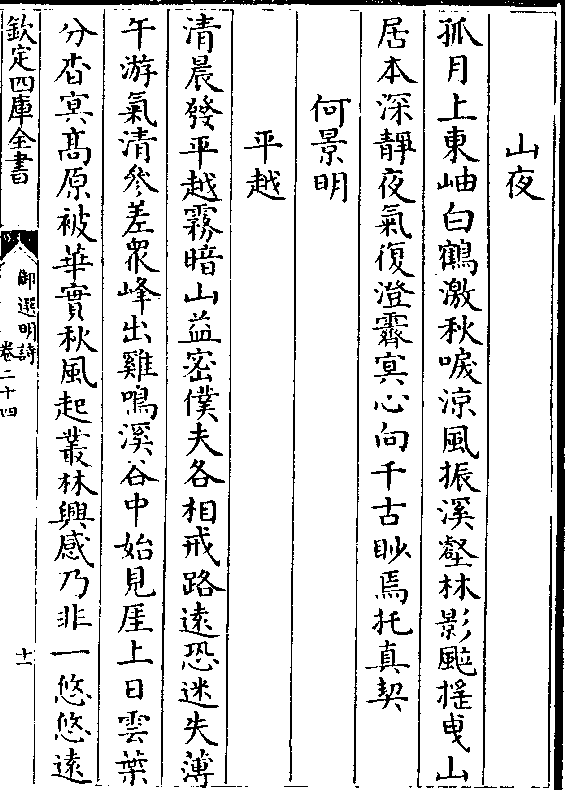 山夜
孤月上東岫白鶴激秋唳涼風振溪壑林影颭搖曳山
居本深靜夜氣復澄霽冥心向千古眇焉托真契
何景明
平越
清晨發平越霧暗山益密僕夫各相戒路遠恐迷失薄
午游氣清參差衆峰出雞鳴溪谷中始見厓上日雲葉
分杳冥髙原被華實秋風起叢林興感乃非一悠悠遠
欽定四庫全書
御選明詩
卷二十四
十一